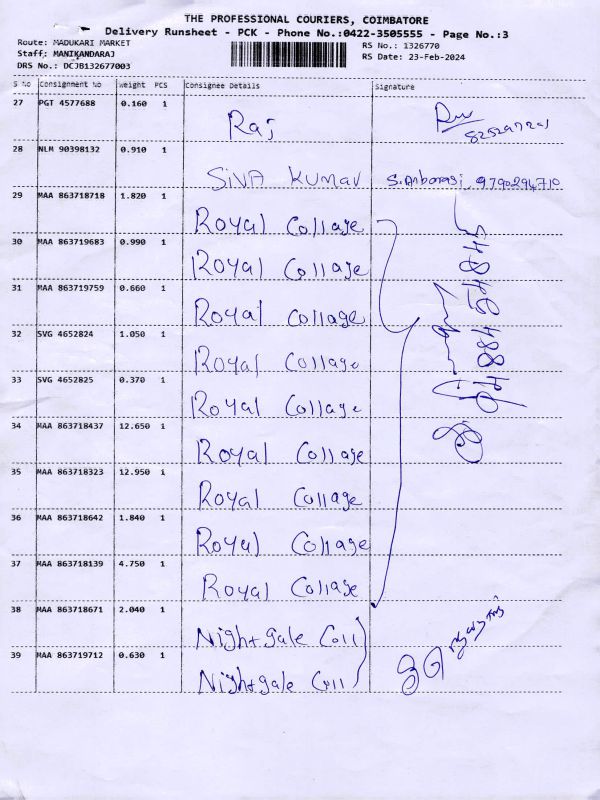 THE PROFESSIONAL COURIERS, COIMBATORE
Delivery Runsheet - PCK - Phone No.:0422-3505555 - Page No.:3
Route: MADUKARI MARKET
Staff: MANIKANDARAJ
DRS No.: DCJB132677003
RS No.: 1326770
RS Date: 23-Feb-2024
S No Consignment No Weight PCS Consignee Details Signature
27 PGT 4577688 0.160 1 Raj
28 NLM 90398132 0.910 1 SiVA Kumar S.Anbarasi, 9790294710
29 MAA 863718718 1.820 1 Royal Collage
30 MAA 863719683 0.990 1 Royal Collage
31 MAA 863719759 0.660 1 Royal Collage
32 SVG 4652824 1.050 1 Royal Collage
33 SVG 4652825 0.370 1 Royal Collage
34 MAA 863718437 12.650 1 Royal Collage
35 MAA 863718323 12.950 1 Royal Collage
36 MAA 863718642 1.840 1 Royal Collage
37 MAA 863718139 4.750 1 Royal Collage
38 MAA 863718671 2.040 1 Nightgale Coll
39 MAA 863719712 0.630 1 Nightgale Coll